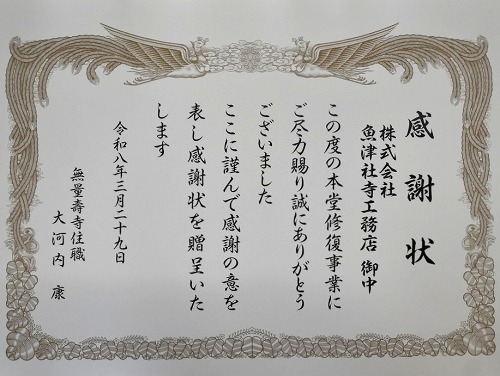 感謝状
株式会社
魚津社寺工務店 御中
この度の本堂修復事業に
ご尽力賜り誠にありがとう
ございました
ここに謹んで感謝の意を
表し感謝状を贈呈いた
します
令和八年三月二十九日
無量壽寺住職
大河内 康